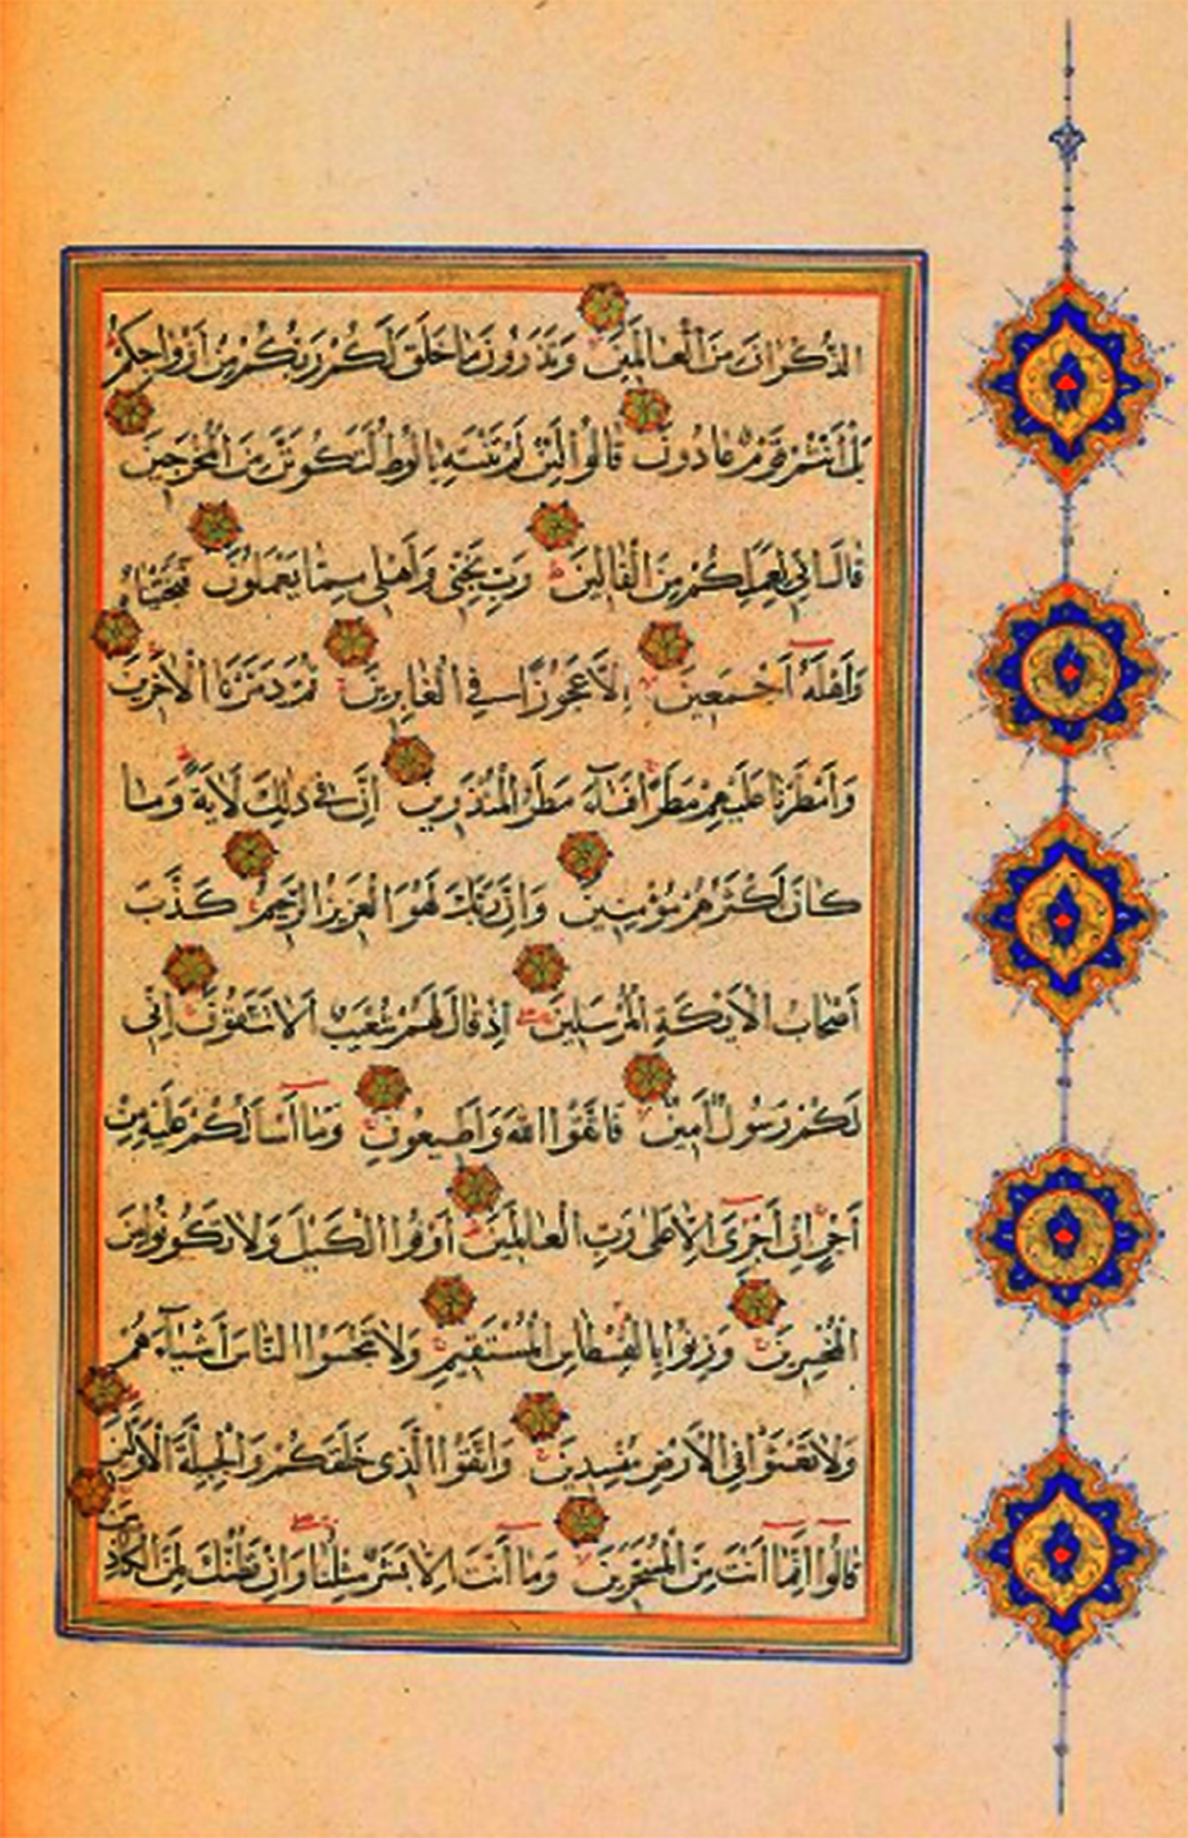 الذُّكْرَانَ مِنَ الْعَالَمِينَ وَتَذَرُونَ مَا خَلَقَ لَكُمْ رَبُّكُمْ مِنْ أَزْوَاجِكُمْ
بَلْ أَنْتُمْ قَوْمٌ عَادُونَ قَالُوا لَئِنْ لَمْ تَنْتَهِ يَا لُوطُ لَتَكُونَنَّ مِنَ الْمُخْرَجِينَ
قَالَ إِنِّي لِعَمَلِكُمْ مِنَ الْقَالِينَ رَبِّ نَجِّنِي وَأَهْلِي مِمَّا يَعْمَلُونَ فَنَجَّيْنَاهُ
وَأَهْلَهُ أَجْمَعِينَ إِلَّا عَجُوزًا فِي الْغَابِرِينَ ثُمَّ دَمَّرْنَا الْآخَرِينَ
وَأَمْطَرْنَا عَلَيْهِمْ مَطَرًا فَسَاءَ مَطَرُ الْمُنْذَرِينَ إِنَّ فِي ذَلِكَ لَآيَةً وَمَا
كَانَ أَكْثَرُهُمْ مُؤْمِنِينَ وَإِنَّ رَبَّكَ لَهُوَ الْعَزِيزُ الرَّحِيمُ كَذَّبَ
أَصْحَابُ الْأَيْكَةِ الْمُرْسَلِينَ إِذْ قَالَ لَهُمْ شُعَيْبٌ أَلَا تَتَّقُونَ إِنِّي
لَكُمْ رَسُولٌ أَمِينٌ فَاتَّقُوا اللَّهَ وَأَطِيعُونِ وَمَا أَسْأَلُكُمْ عَلَيْهِ مِنْ
أَجْرٍ إِنْ أَجْرِيَ إِلَّا عَلَى رَبِّ الْعَالَمِينَ أَوْفُوا الْكَيْلَ وَلَا تَكُونُوا مِنَ
الْمُخْسِرِينَ وَزِنُوا بِالْقِسْطَاسِ الْمُسْتَقِيمِ وَلَا تَبْخَسُوا النَّاسَ أَشْيَاءَهُمْ
وَلَا تَعْثَوْا فِي الْأَرْضِ مُفْسِدِينَ وَاتَّقُوا الَّذِي خَلَقَكُمْ وَالْجِبِلَّةَ الْأَوَّلِينَ
قَالُوا إِنَّمَا أَنْتَ مِنَ الْمُسَحَّرِينَ وَمَا أَنْتَ إِلَّا بَشَرٌ مِثْلُنَا وَإِنْ نَظُنُّكَ لَمِنَ الْكَاذِبِينَ